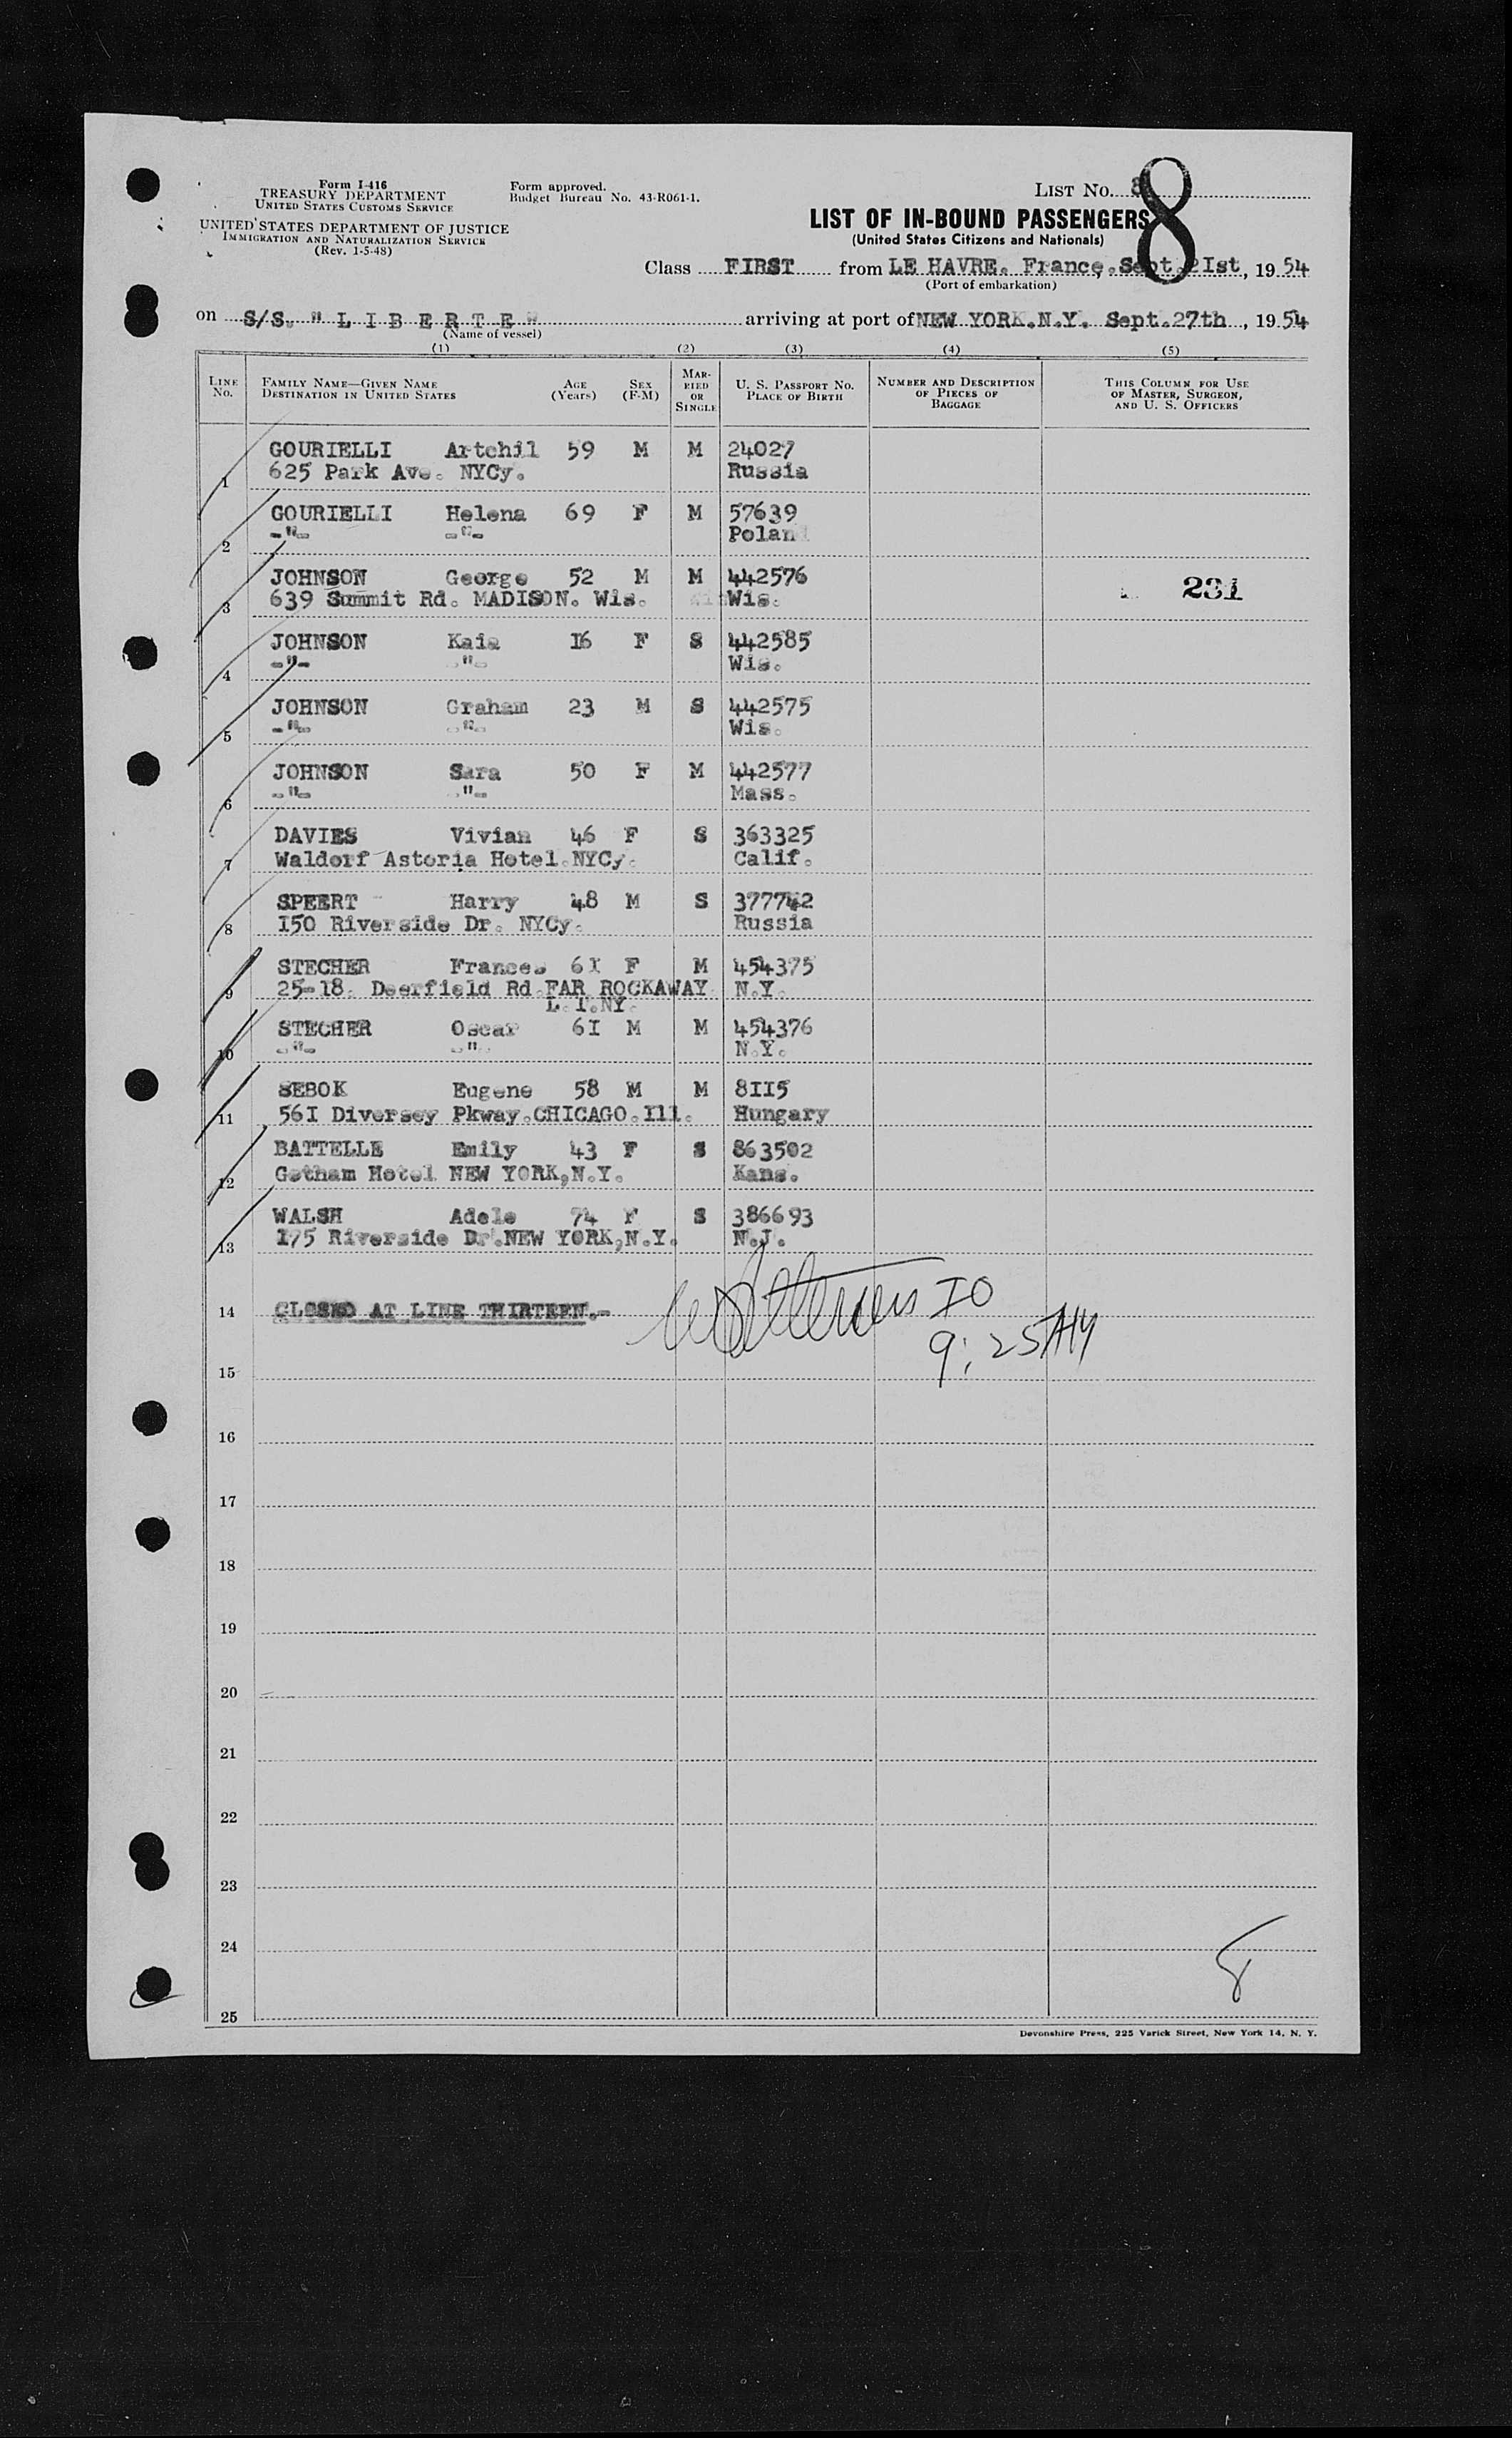 Form I-416
TREASURY DEPARTMENT
UNITED STATES CUSTOMS SERVICE
UNITED STATES DEPARTMENT OF JUSTICE
IMMIGRATION AND NATURALIZATION SERVICE
(Rev. 1-5-48)
Form approved.
Budget Bureau No. 43-R061-1.
LIST NO. 8
LIST OF IN-BOUND PASSENGERS
(United States Citizens and Nationals)
Class FIRST from LE HAVRE. France, Sept. 2Ist, 19 54
(Port of embarkation)
on S/S. " L I B E R T E " arriving at port of NEW YORK.N.Y. Sept.27th, 19 54
(Name of vessel)
(1) (2) (3) (4) (5)
LINE NO. FAMILY NAME—GIVEN NAME DESTINATION IN UNITED STATES AGE (Years) SEX (F-M) MARRIED OR SINGLE U. S. PASSPORT NO. PLACE OF BIRTH NUMBER AND DESCRIPTION OF PIECES OF BAGGAGE THIS COLUMN FOR USE OF MASTER, SURGEON, AND U. S. OFFICERS
GOURIELLI Artchil 59 M M 24027
1 625 Park Ave. NYCy. Russia
GOURIELLI Helena 69 F M 57639
2 -"- -"- Poland
JOHNSON George 52 M M 442576
3 639 Summit Rd. MADISON. Wis. Wis. 231
JOHNSON Kaia I6 F S 442585
4 -"- -"- Wis.
JOHNSON Graham 23 M S 442575
5 -"- -"- Wis.
JOHNSON Sara 50 F M 442577
6 -"- -"- Mass.
DAVIES Vivian 46 F S 363325
7 Waldorf Astoria Hotel.NYCy. Calif.
SPEERT Harry 48 M S 377742
8 I50 Riverside Dr. NYCy. Russia
STECHER Frances 6I F M 454375
9 25-18. Deerfield Rd.FAR ROCKAWAY N.Y.
L.I.NY.
STECHER Oscar 6I M M 454376
10 -"- -"- N.Y.
SEBOK Eugene 58 M M 8II5
11 56I Diversey Pkway.CHICAGO.Ill. Hungary
BATTELLE Emily 43 F S 863502
12 Gotham Hotel NEW YORK,N.Y. Kans.
WALSH Adele 74 F S 386693
13 I75 Riverside Dr.NEW YORK,N.Y. N.J.
14 CLOSED AT LINE THIRTEEN.- IO
9:25 AM
15
16
17
18
19
20
21
22
23
24
8
25
Devonshire Press, 225 Varick Street, New York 14, N. Y.